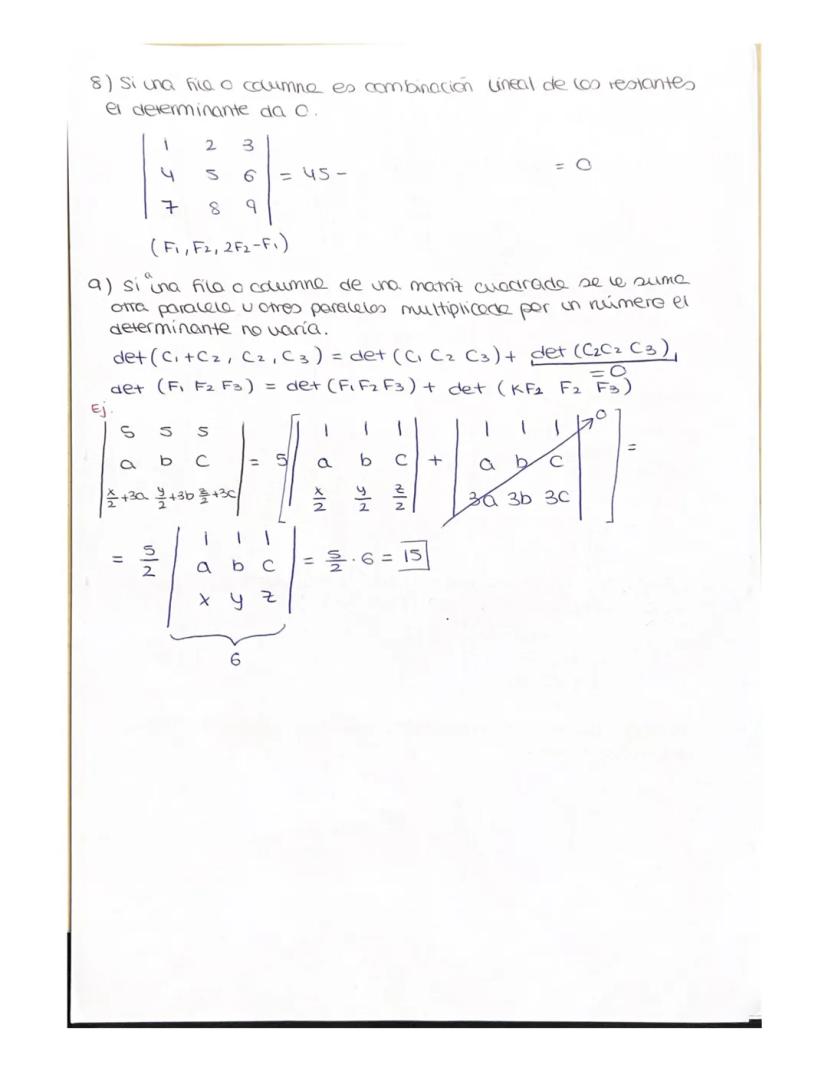 8) Si una fila o columna es combinación lineal de los restantes
el determinante da 0.
| 1 2 3 |
| 4 5 6 | = 45 - = 0
| 7 8 9 |
(F₁, F₂, 2F₂-F₁)
9) Si a una fila o columna de una matriz cuadrada se le suma
otra paralela u otros paralelos multiplicada por un número el
determinante no varía.
det (C₁+C₂, C₂, C₃) = det (C₁ C₂ C₃) + det (C₂C₂ C₃)
= 0
det (F₁ F₂ F₃) = det (F₁F₂F₃) + det (KF₂ F₂ F₃)
Ej.
| 5 5 5 | | 1 1 1 | | 1 1 1 | 0
| a b c | = 5 [ | a b c | + | a b c | ] =
| x/2+3a y/2+3b z/2+3c | | x/2 y/2 z/2 | | 3a 3b 3c |
| 1 1 1 |
= 5/2 | a b c | = 5/2 · 6 = 15
| x y z |
6